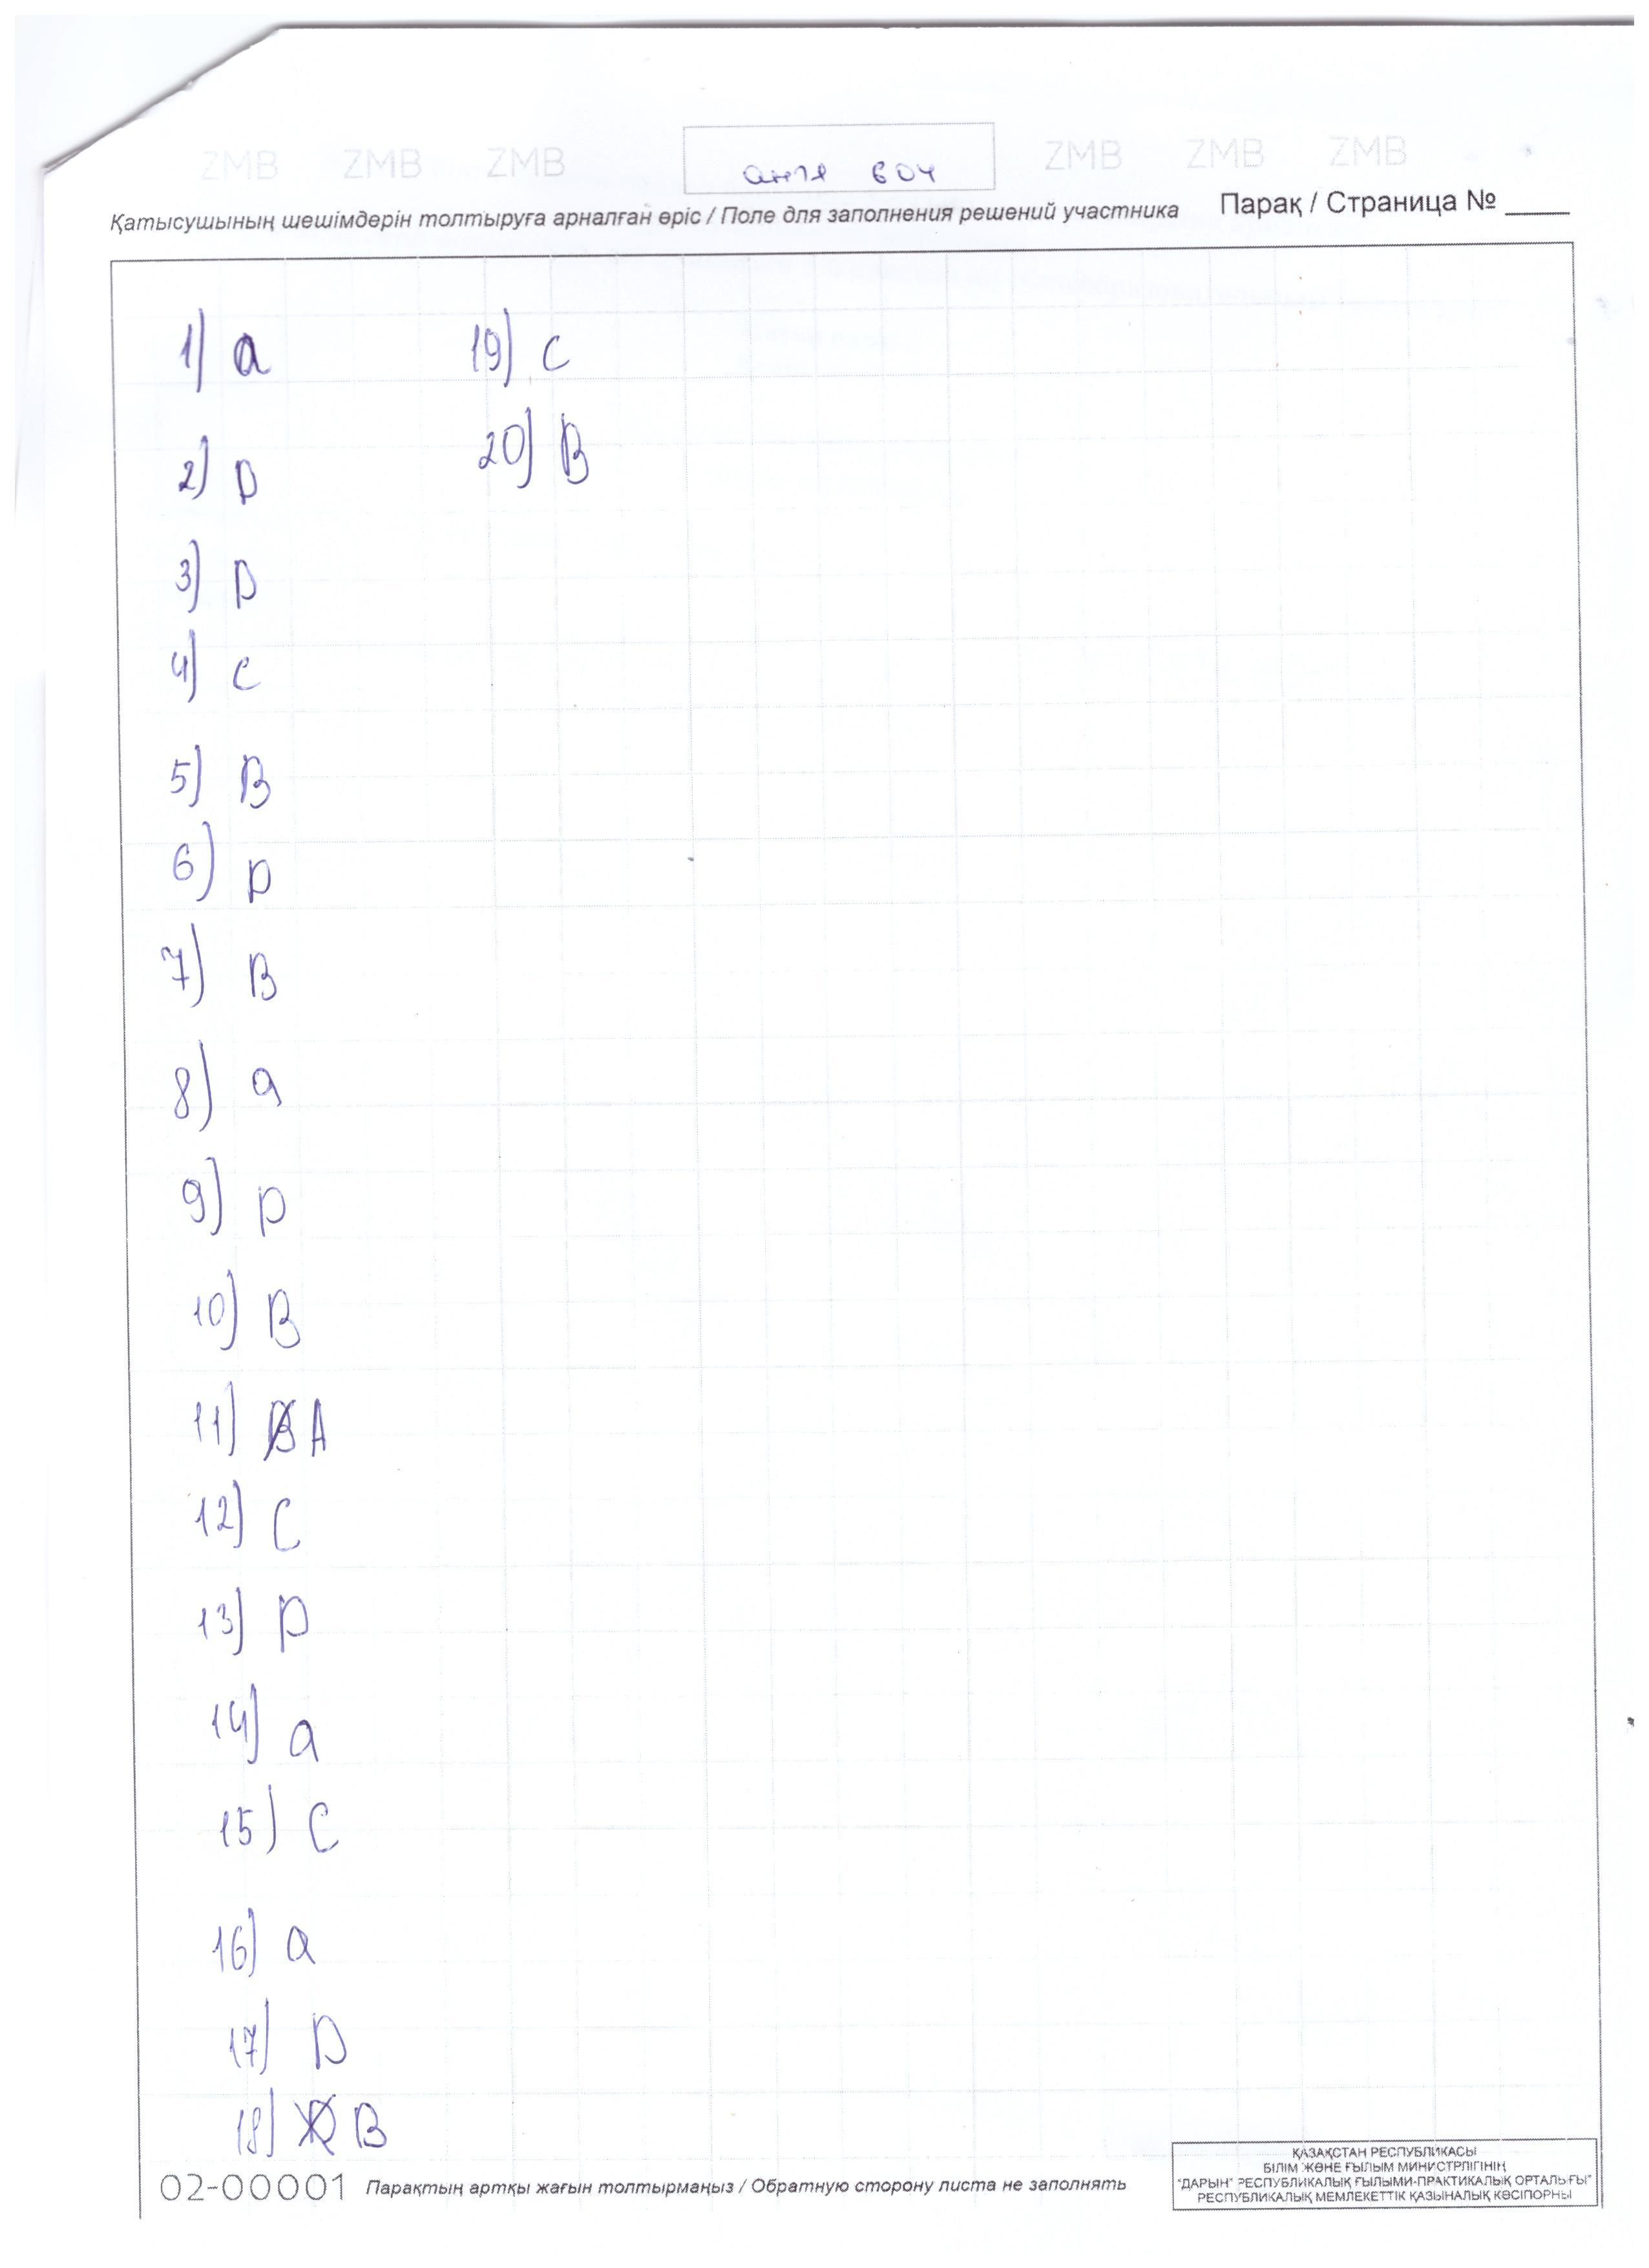 ZMB ZMB ZMB англ 604 ZMB ZMB ZMB
Қатысушының шешімдерін толтыруға арналған өріс / Поле для заполнения решений участника Парақ / Страница № ____
1) a
2) D
3) D
4) c
5) B
6) D
7) B
8) a
9) D
10) B
11) B A
12) C
13) D
14) a
15) C
16) a
17) D
18) D B
19) c
20) B
02-00001 Парақтың артқы жағын толтырмаңыз / Обратную сторону листа не заполнять
ҚАЗАҚСТАН РЕСПУБЛИКАСЫ
БІЛІМ ЖӘНЕ ҒЫЛЫМ МИНИСТРЛІГІНІҢ
"ДАРЫН" РЕСПУБЛИКАЛЫҚ ҒЫЛЫМИ-ПРАКТИКАЛЫҚ ОРТАЛЫҒЫ"
РЕСПУБЛИКАЛЫҚ МЕМЛЕКЕТТІК ҚАЗЫНАЛЫҚ КӘСІПОРНЫ